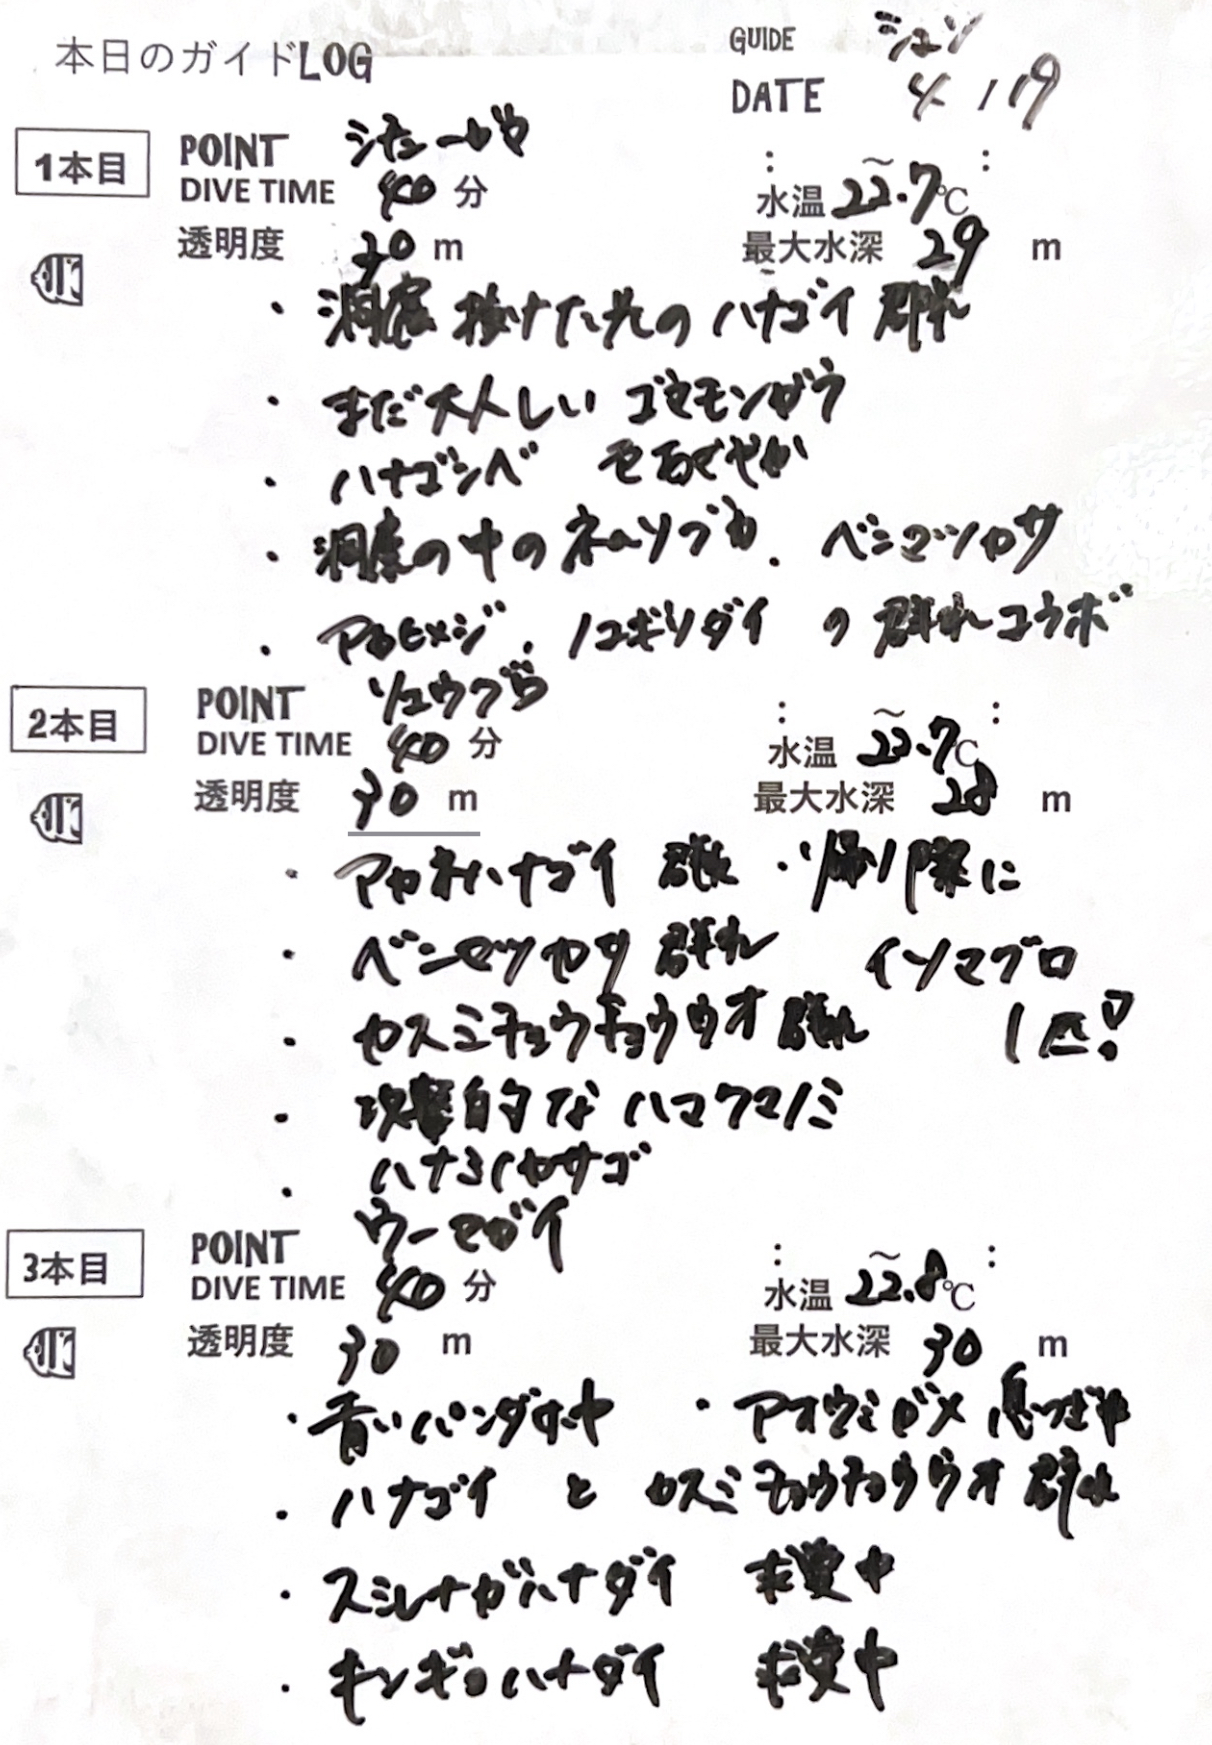 本日のガイドLOG
GUIDE ジュン
DATE 4/19
1本目
POINT シチューガマ
DIVE TIME 40分
: ～ :
水温 22.7℃
透明度 30 m
最大水深 29 m
・洞窟抜けた先のハナゴイ群れ
・まだ大人しいゴマモンガラ
・ハナゴンベ 色あざやか
・洞窟の中のネムリブカ. ベニマツカサ
・アカヒメジ. ノコギリダイの群れコラボ
2本目
POINT リュウグウ
DIVE TIME 40分
: ～ :
水温 22.7℃
透明度 30 m
最大水深 28 m
・アカネハナゴイ 群れ ・帰り際に
・ベニマツカサ 群れ イソマグロ
・カスミチョウチョウウオ群れ 1匹!
・攻撃的なハマクマノミ
・ハナミノカサゴ
3本目
POINT ウーマガイ
DIVE TIME 40分
: ～ :
水温 22.8℃
透明度 30 m
最大水深 30 m
・青いパンダホヤ ・アオウミガメ 息つぎ中
・ハナゴイ と カスミチョウチョウウオ群れ
・スミレナガハナダイ 求愛中
・キンギョハナダイ 求愛中